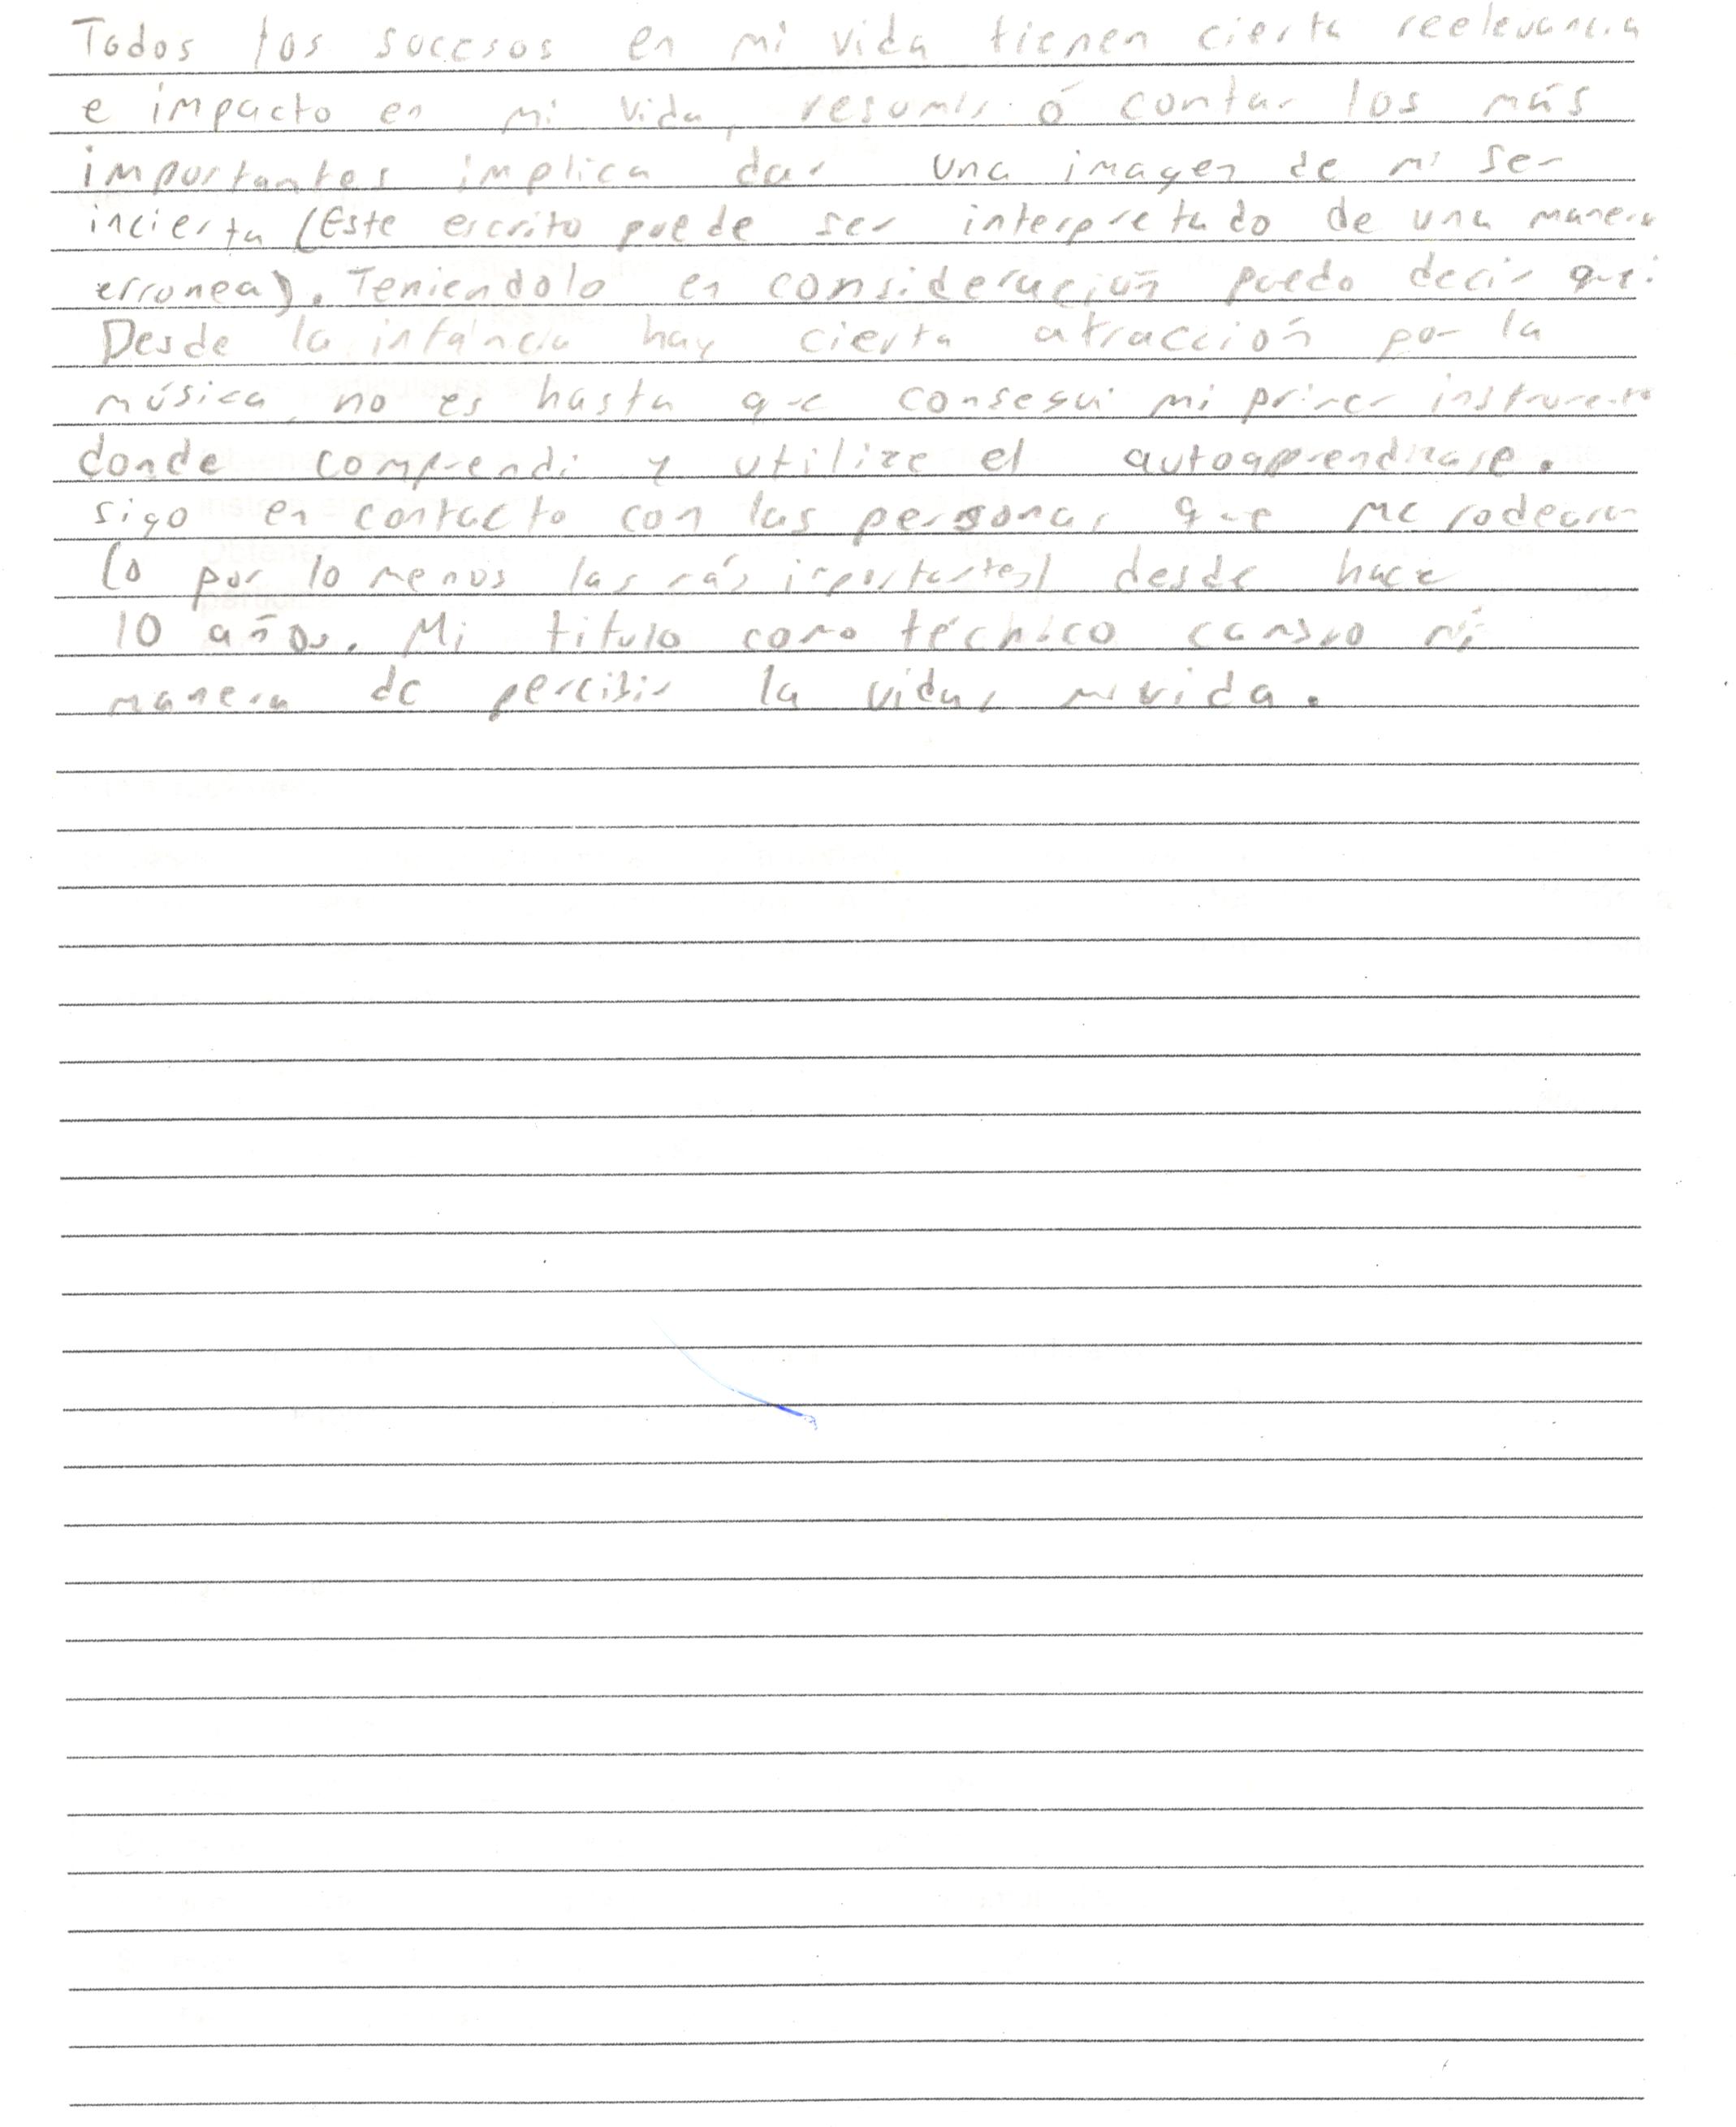 Todos los sucesos en mi vida tienen cierta reelevancia
e impacto en mi vida, resumir ó contar los más
importantes implica dar una imagen de mi ser
incierta (Este escrito puede ser interpretado de una manera
erronea). Teniendolo en consideración puedo decir que:
Desde la infáncia hay cierta atracción por la
música, no es hasta que consegui mi primer instrumento
donde comprendi y utilize el autoaprendizaje.
sigo en contacto con las personas que me rodearon
(o por lo menos las más importantes) desde hace
10 años. Mi titulo como técnico cambio mi
manera de percibir la vida, mi vida.